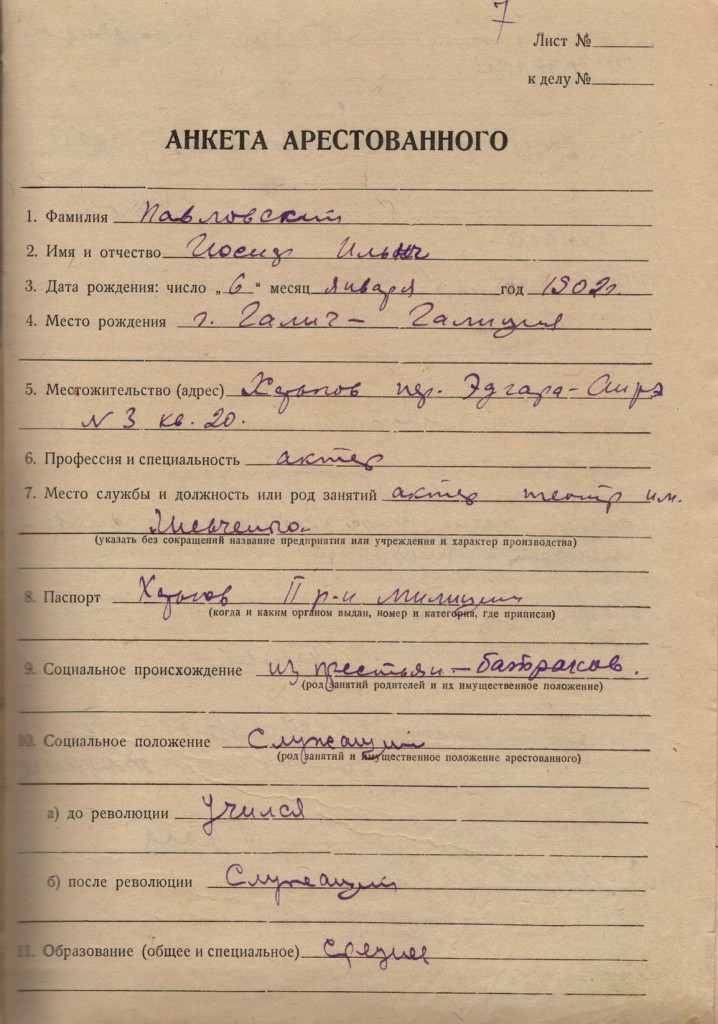 7
Лист №
к делу №
АНКЕТА АРЕСТОВАННОГО
1. Фамилия Павловский
2. Имя и отчество Иосиф Ильич
3. Дата рождения: число „6“ месяц января год 1902 г.
4. Место рождения г. Галич – Галиция
5. Местожительство (адрес) Харьков пер. Эдгара-
N 3 кв. 20.
6. Профессия и специальность актер
7. Место службы и должность или род занятий актер театр им.
Шевченко
(указать без сокращений название предприятия или учреждения и характер производства)
8. Паспорт Харьков П р-н милиции
(когда и каким органом выдан, номер и категория, где приписан)
9. Социальное происхождение из крестьян – батраков.
(род занятий родителей и их имущественное положение)
10. Социальное положение Служащий
(род занятий и имущественное положение арестованного)
а) до революции учился
б) после революции Служащий
11. Образование (общее и специальное) среднее